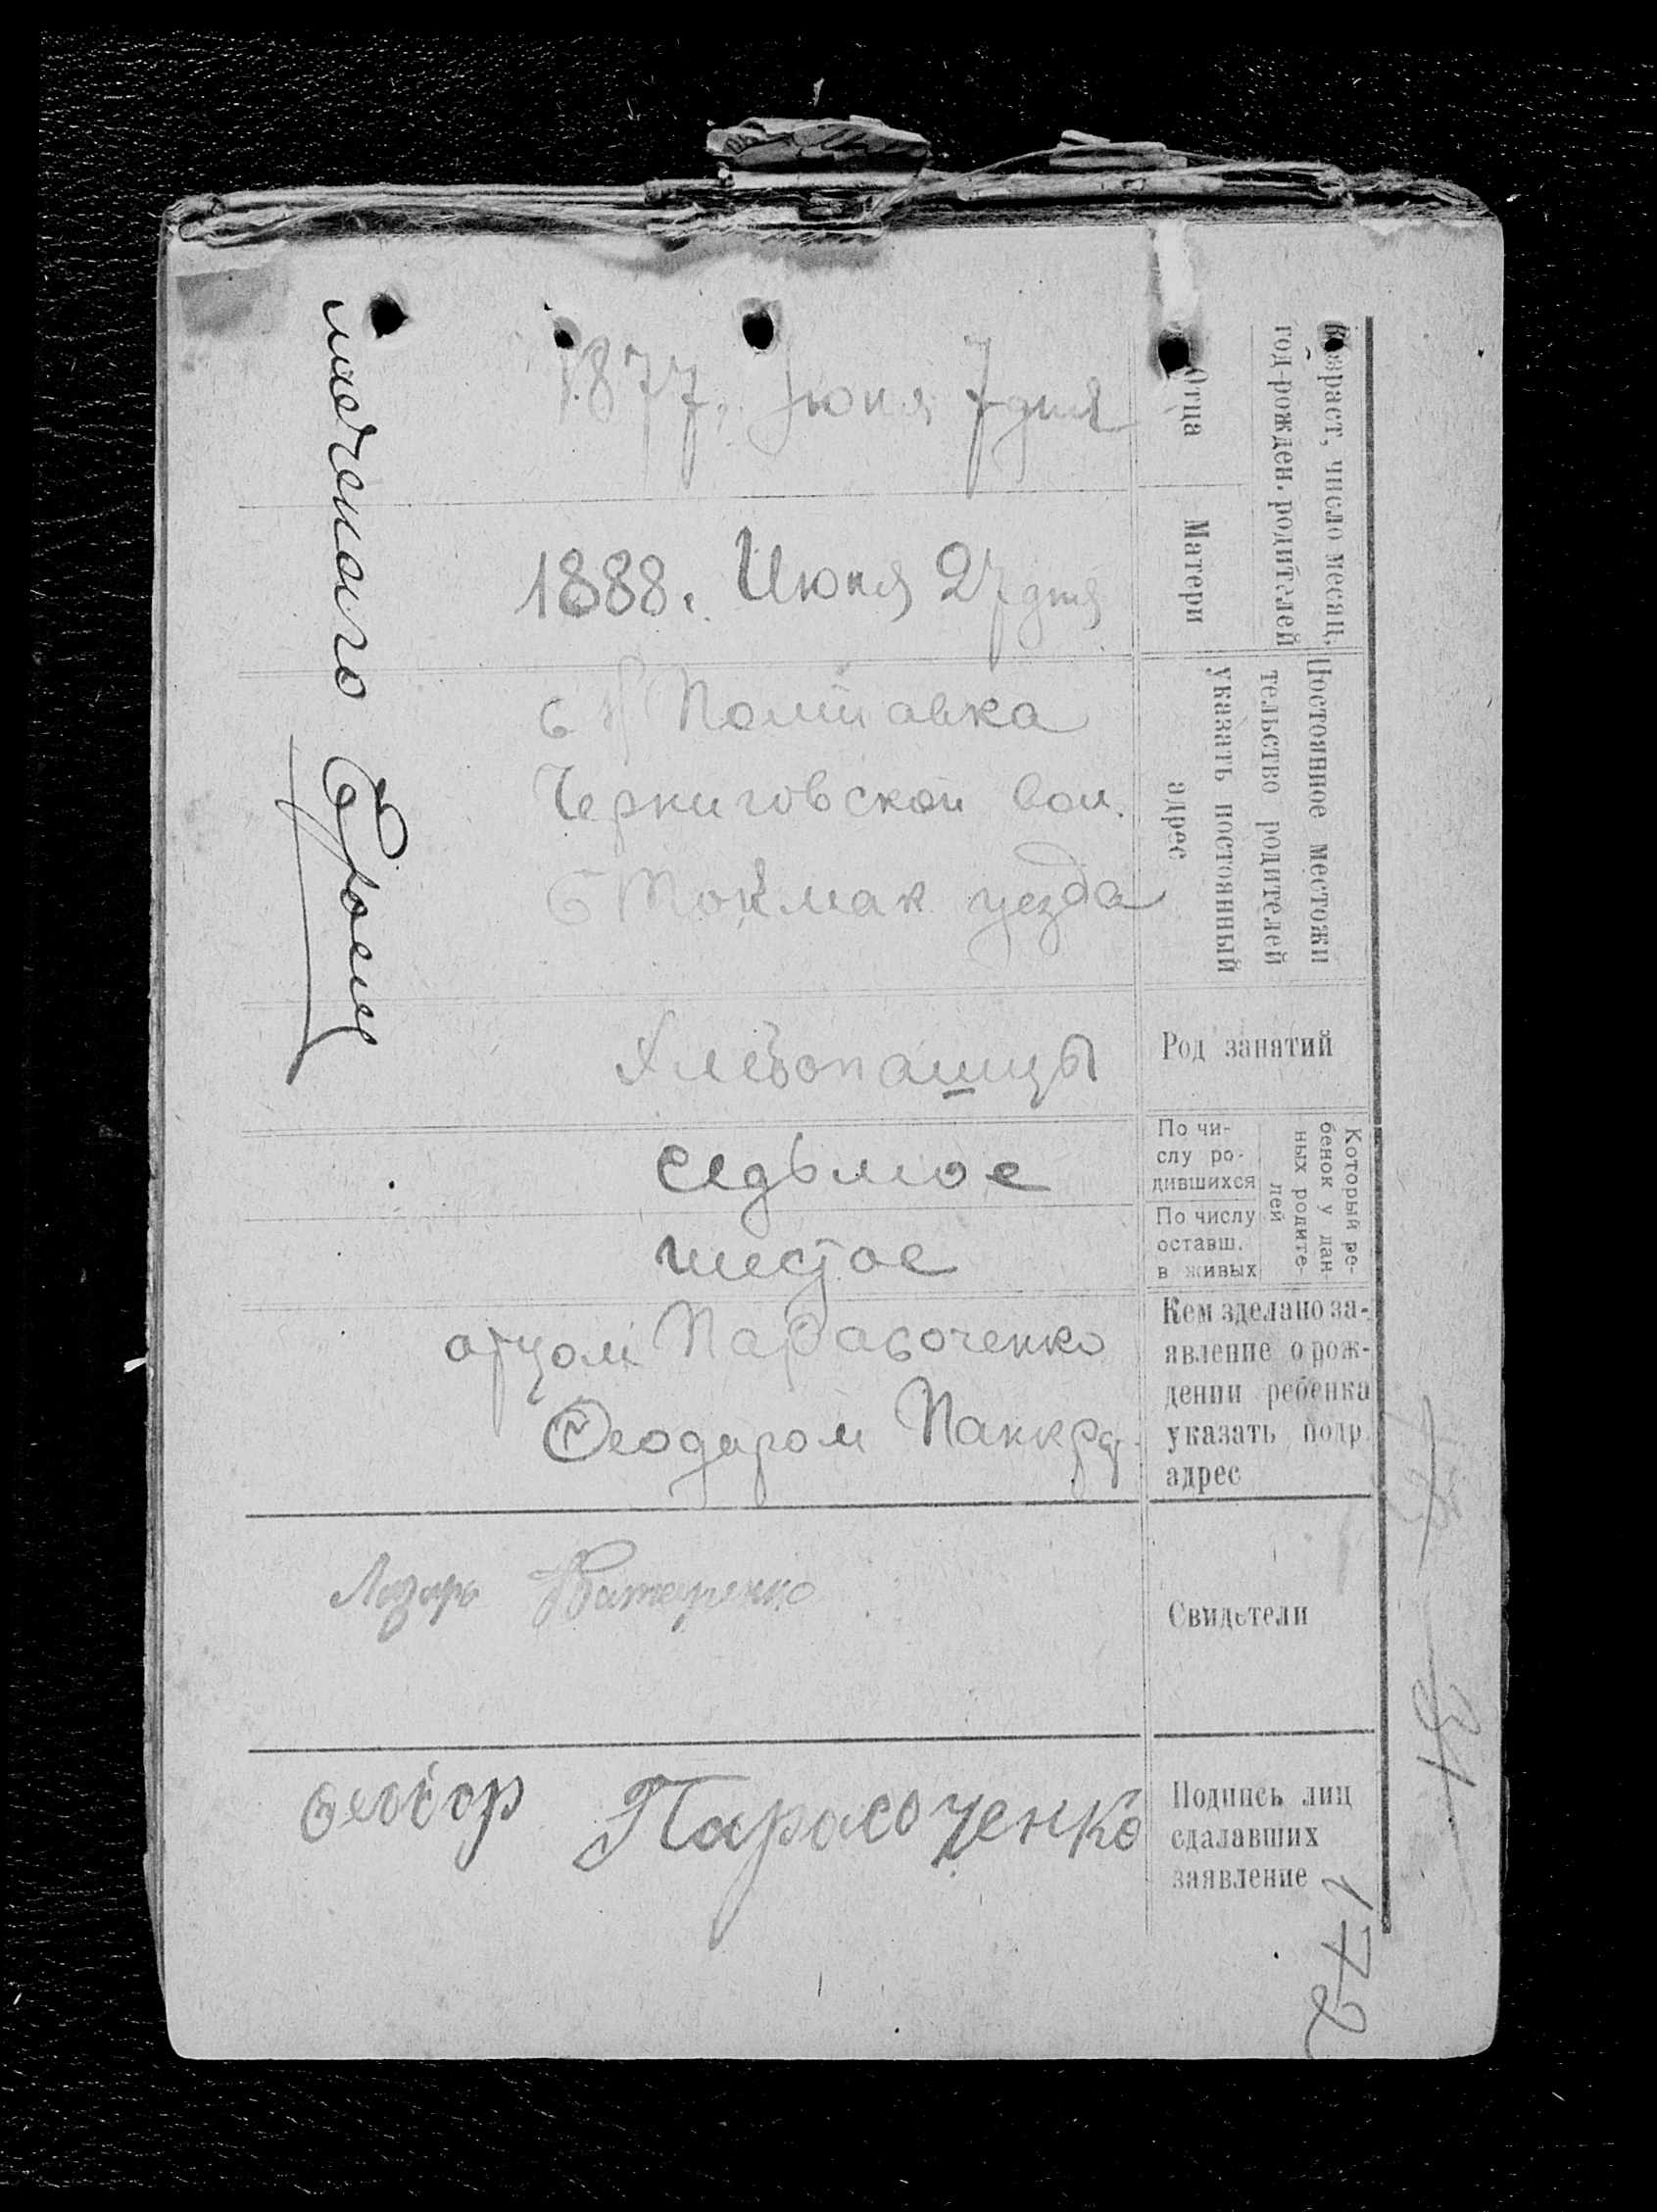 Возраст, число месяц,
год рожден. родителей
Отца
1877. Июня 7 дня
Матери
1888. Июня 27 дня
Постоянное местожи
тельство родителей
указать постоянный
адрес
с Полтавка
Черниговской вол.
Б Токмак уезда
Род занятий
Хлебопашцы
Который ре-
бенок у дан-
ных родите-
лей
По чи-
слу ро-
дившихся
седьмое
По числу
оставш.
в живых
шестое
Кем зделано за-
явление о рож-
дении ребенка
указать подр.
адрес
отцом Парасоченко
Феодором Панкра
Свидетели
Лазарь
Подпись лиц
сдалавших
заявление
Феодор Парасоченко
172
34